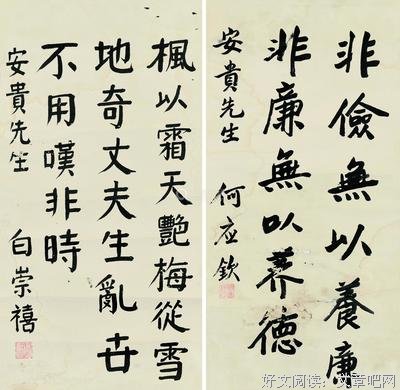 非儉無以養廉
非廉無以養德
安貴先生 何应欽
楓以霜天艷梅從雪
地奇丈夫生亂世
不用嘆非時
安貴先生 白崇禧
好文阅读：文章吧网